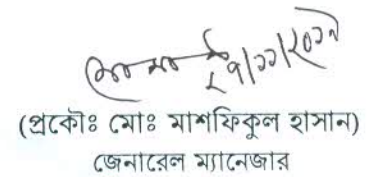 ২৭/১১/২০১৭
(প্রকৌঃ মোঃ মাশফিকুল হাসান)
জেনারেল ম্যানেজার